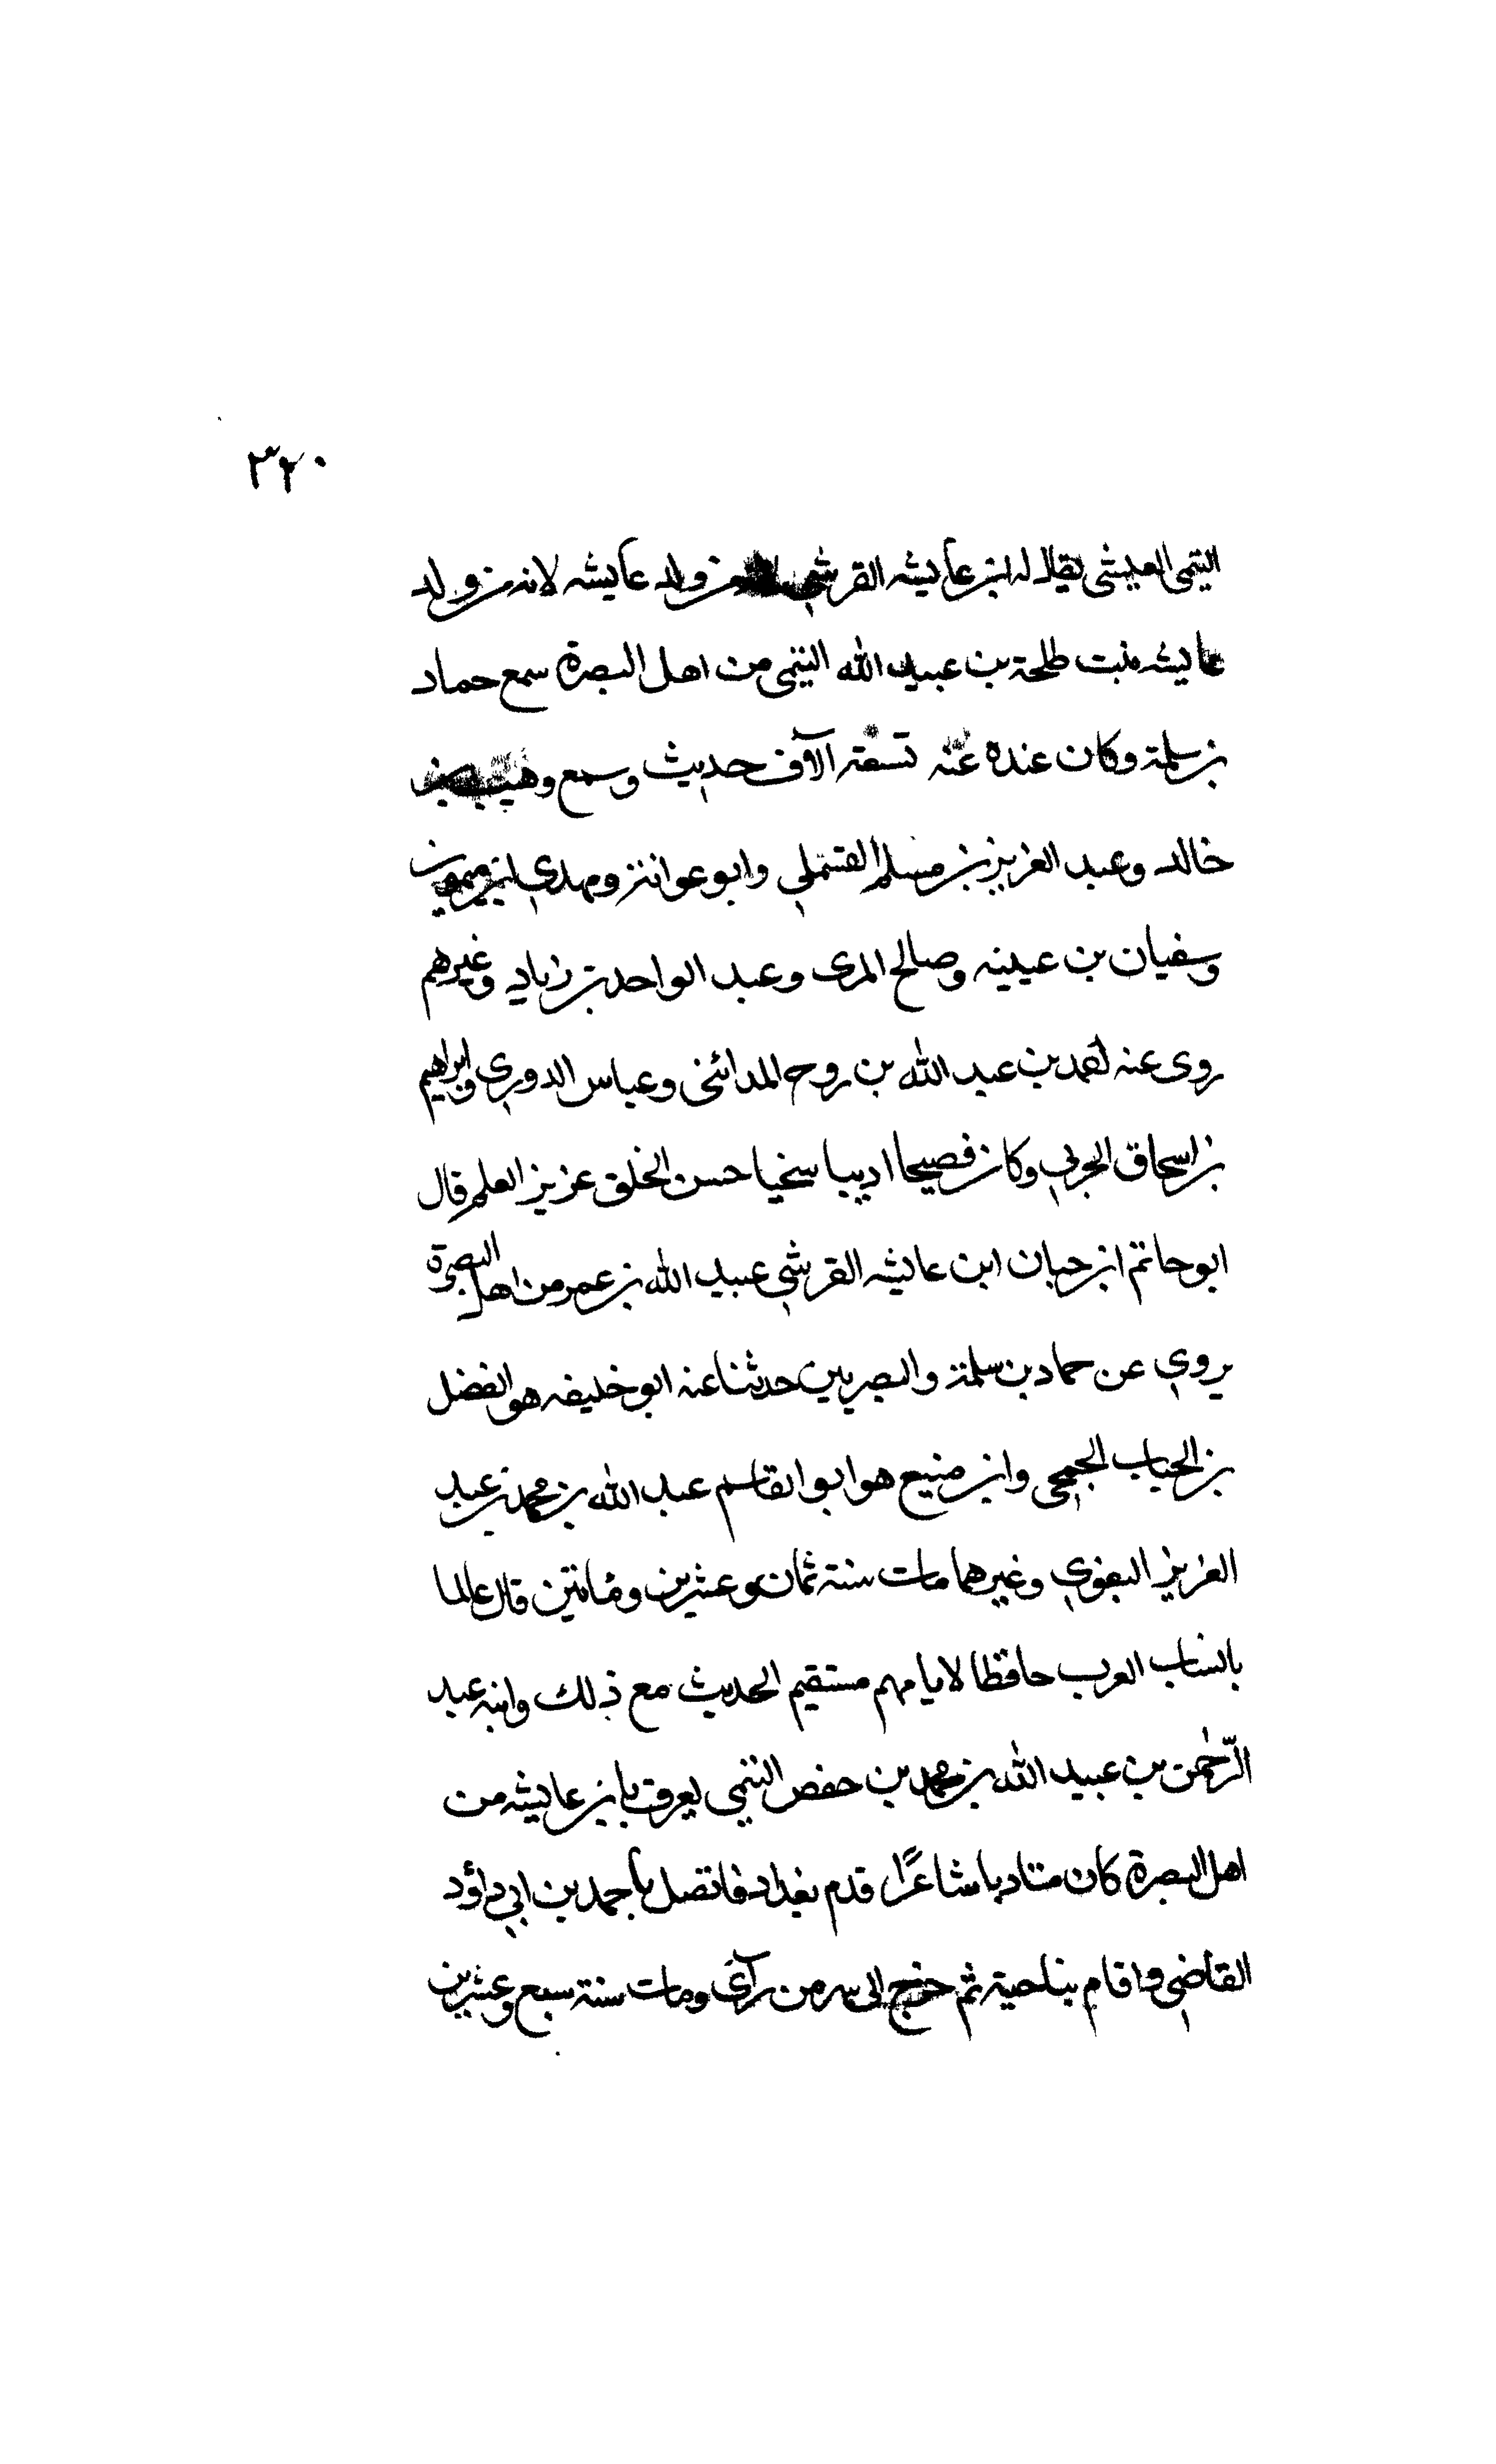 ٣٢٠
التيمى العيشى يقال له ابن عايشه القرشي من ولد عايشه لانه من ولد
عايشه بنت طلحة بن عبيد الله التيمى من اهل البصرة سمع حماد
بن سلمة وكان عنده عنه تسعة الآف حديث وسمع وهيب بن
خالد وعبد العزيز بن مسلم القسملي وابو عوانة ومهدي بن ميمون
وسفيان بن عيينه وصالح المرى وعبد الواحد بن زياد وغيرهم
روى عنه بن عبد الله بن روح المدائنى وعباس الدوري وابراهيم
بن اسحاق الحربي وكان فصيحا اديبا سخيا حسن الخلق عزيز العلم قال
ابو حاتم ابن حبان ابن عائشه القرشي عبيد الله بن عمر من اهل البصرة
يروي عن حماد بن سلمة والبصريين حدثنا عنه ابو خليفه هو الفضل
بن الحباب الجمحى وابن منيع هو ابو القاسم عبد الله بن محمد بن عبد
العزيز البغوي وغيرهما مات سنة ثمان وعشرين ومائتين قال عالما
بانساب العرب حافظا لايامهم مستقيم الحديث مع ذلك وابنه عبد
الرّحمٰن بن عبيد الله بن محمد بن حفص التيمي يعرف بابن عايشه من
اهل البصرة كان متادبا شاعرًا قدم بغداد فاتصل باحمد بن ابي داؤد
القاضي واقام بناحية ثم خرج الى سر من رآى ومات سنة سبع وعشرين